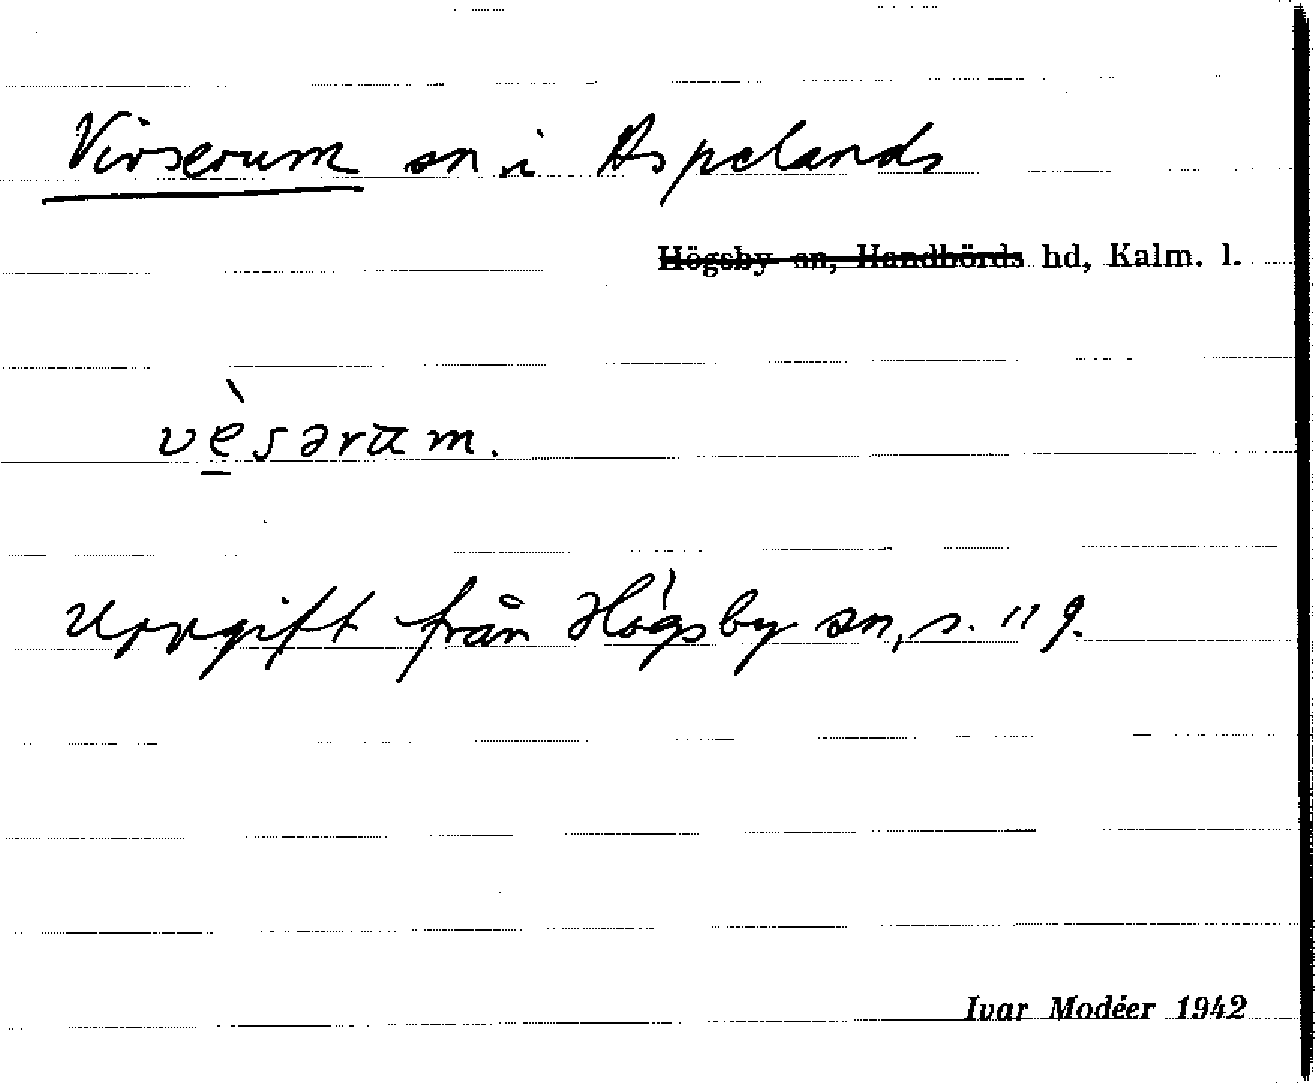 Virserum sn i Aspelands
Högsby sn, Handbörds hd, Kalm. l.
vè̲sərum.
Uppgift från Högsby sn, s. 119.
Ivar Modéer 1942